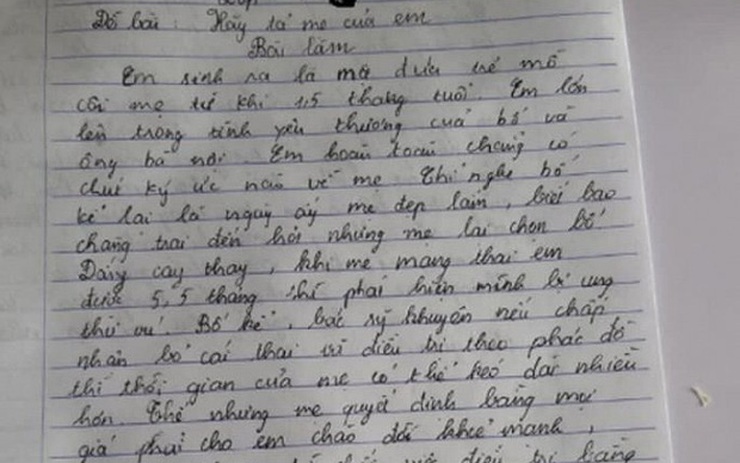 Đề bài: Hãy tả mẹ của em
Bài làm
Em sinh ra là một đứa trẻ mồ
côi mẹ từ khi 1,5 tháng tuổi. Em lớn
lên trong tình yêu thương của bố và
ông bà nội. Em hoàn toàn chẳng có
chút ký ức nào về mẹ. Chỉ nghe bố
kể lại là ngày ấy mẹ đẹp lắm, biết bao
chàng trai đến hỏi nhưng mẹ lại chọn bố.
Đắng cay thay, khi mẹ mang thai em
được 5,5 tháng thì phát hiện mình bị ung
thư vú. Bố kể, bác sỹ khuyên nếu chấp
nhận bỏ cái thai và điều trị theo phác đồ
thì thời gian của mẹ có thể kéo dài nhiều
hơn. Thế nhưng mẹ quyết định bằng mọi
giá phải cho em chào đời khoẻ mạnh,
điều trị bằng